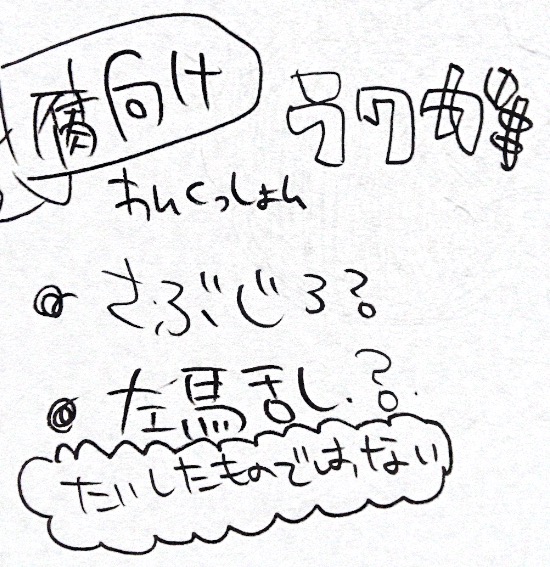 腐向け
ラクガキ
わんくっしょん
さぶじろ?
左馬乱し.?
たいしたものではない